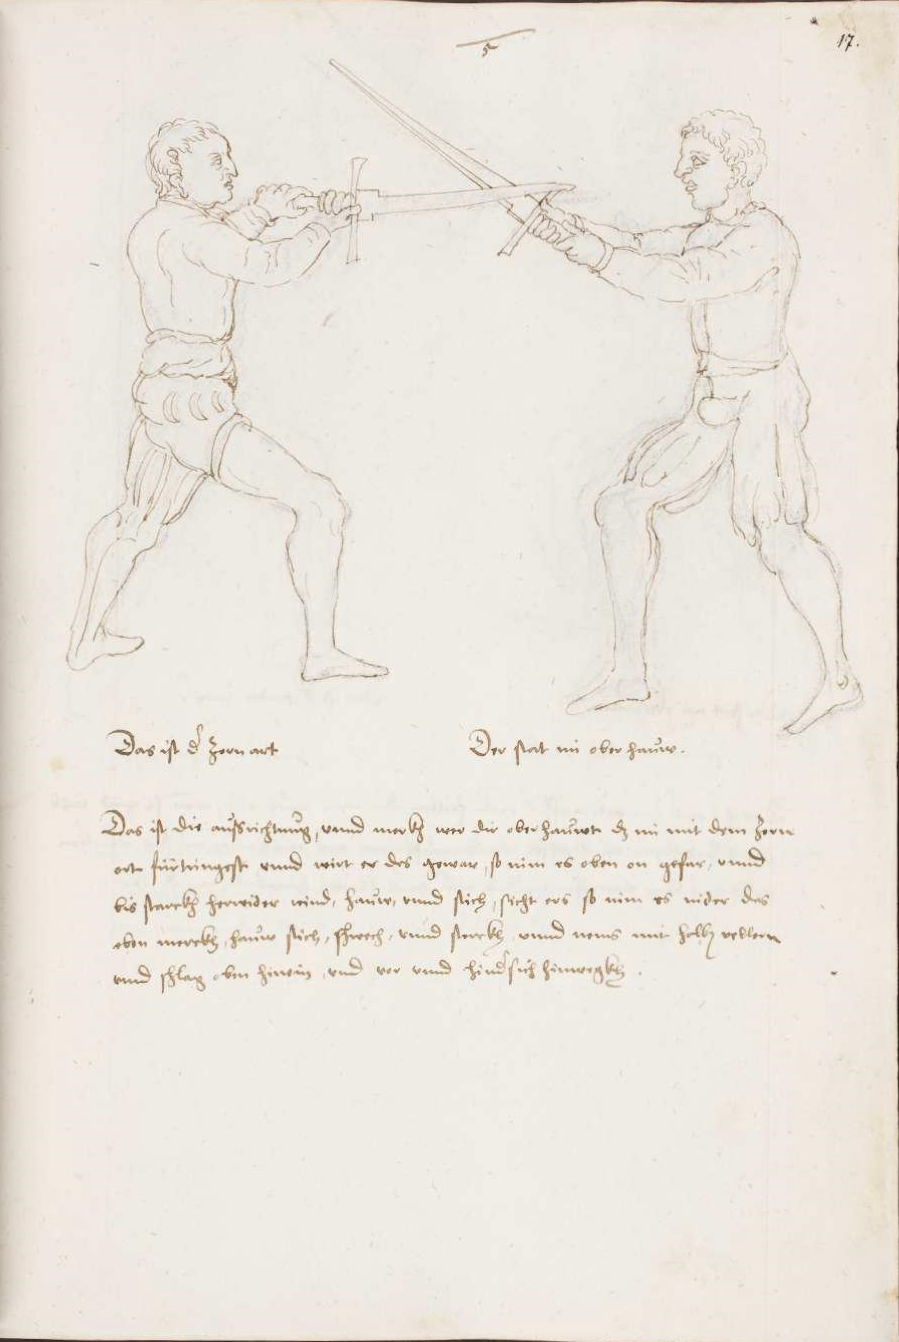 5
17.
Das ist dʳ Zornart
Der stat im oberhauw.
Das ist die ausrichtung, vnnd merkh wer dir oberhauwt dz im mit dem Zorn
ort fürkungest vnnd wirt er des gewar, so nim es oben on gefar, vnnd
bis starckh herwider wind, hauw, vnnd stich, sicht ers so nim es nider das
eben merckh, hauw stich, schwech, vnnd sterckh vnnd nems mit
vnnd schlag oben hinein, vnd vor vnnd hindʳsich hinwegkh.